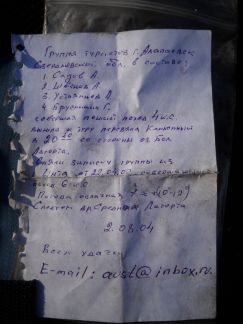 Группа туристов г. Алапаевск
Свердловской обл. в составе:
1. Садов А.
2. Швецов А.
3. Устьянцев А.
4. Брусницин Г.
совершая пеший поход 4 к.с.
вышла к туру перевала Каменный
в 20 со стороны оз. Бол
Лагорта.
Сняли записку группы из
от 22.07.03
6 к.с
Погода облачная
Спуск др. Средняя Лагорта
2.08.04
Всем удачи
E-mail: aust@inbox.ru.